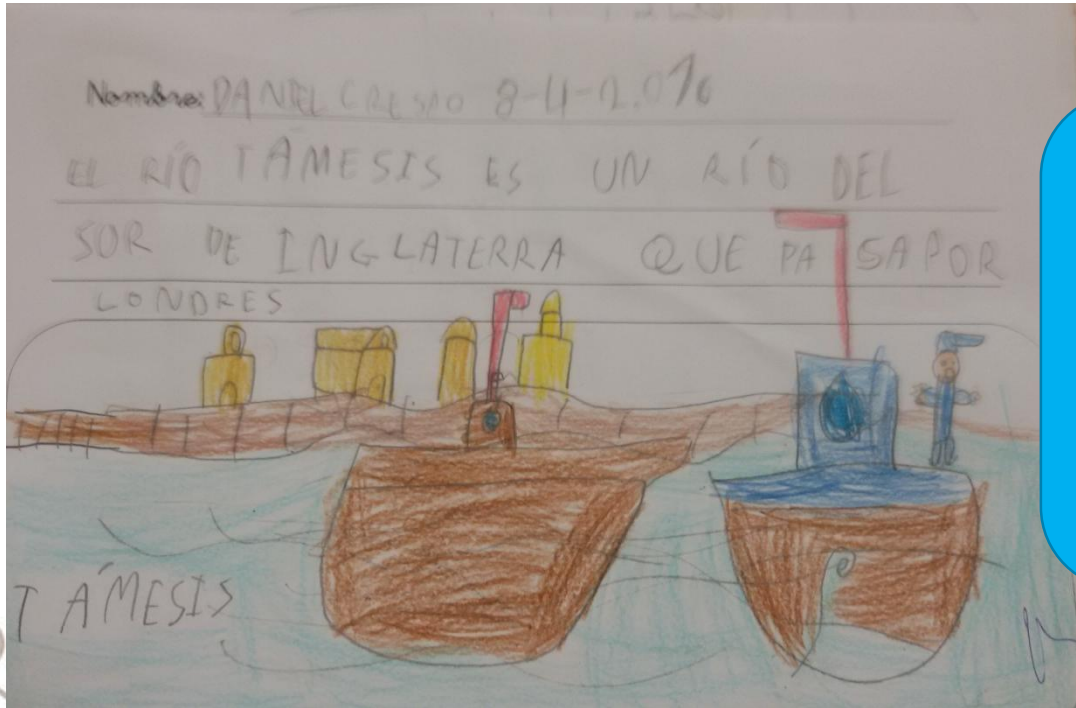 Nombre: DANIEL CRESPO 8-4-2.016
EL RÍO TÁMESIS ES UN RÍO DEL
SOR DE INGLATERRA QUE PASAPOR
LONDRES
TÁMESIS